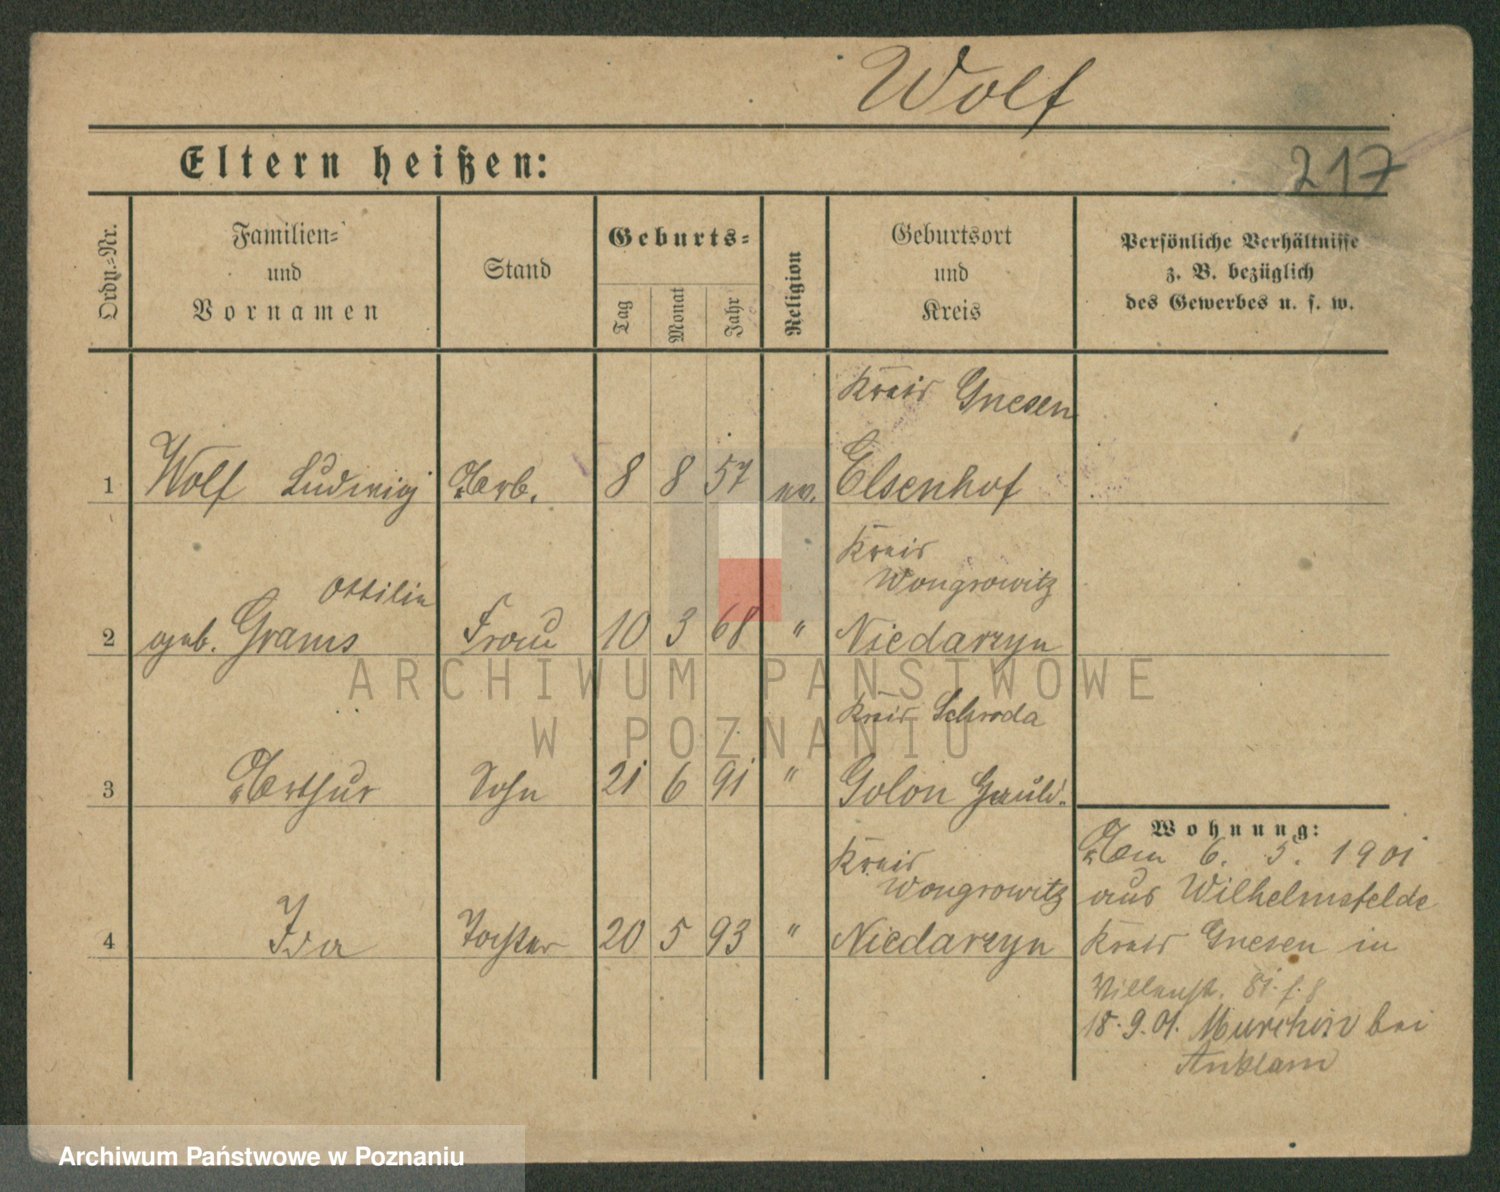 Wolf
Eltern heißen:
217
Ordn.-Nr.
Familien-
und
Vornamen
Stand
Geburts-
Tag
Monat
Jahr
Religion
Geburtsort
und
Kreis
Persönliche Verhältnisse
z. B. bezüglich
des Gewerbes u. s. w.
Kreis Gnesen
1 Wolf Ludwig Arb. 8 8 57 ev. Elsenhof
Kreis
Ottilie Wongrowitz
2 geb. Grams Frau 10 3 68 " Niedarzyn
Kreis Schroda
3 Arthur Sohn 21 6 91 " Golon
Kreis
Wongrowitz
4 Ida Tochter 20 5 93 " Niedarzyn
Wohnung:
Am 6. 5. 1901
aus Wilhelmsfelde
Kreis Gnesen in
Villenst.
18.9.01. Murchin bei
Anklam
ARCHIWUM PAŃSTWOWE
W POZNANIU
Archiwum Państwowe w Poznaniu